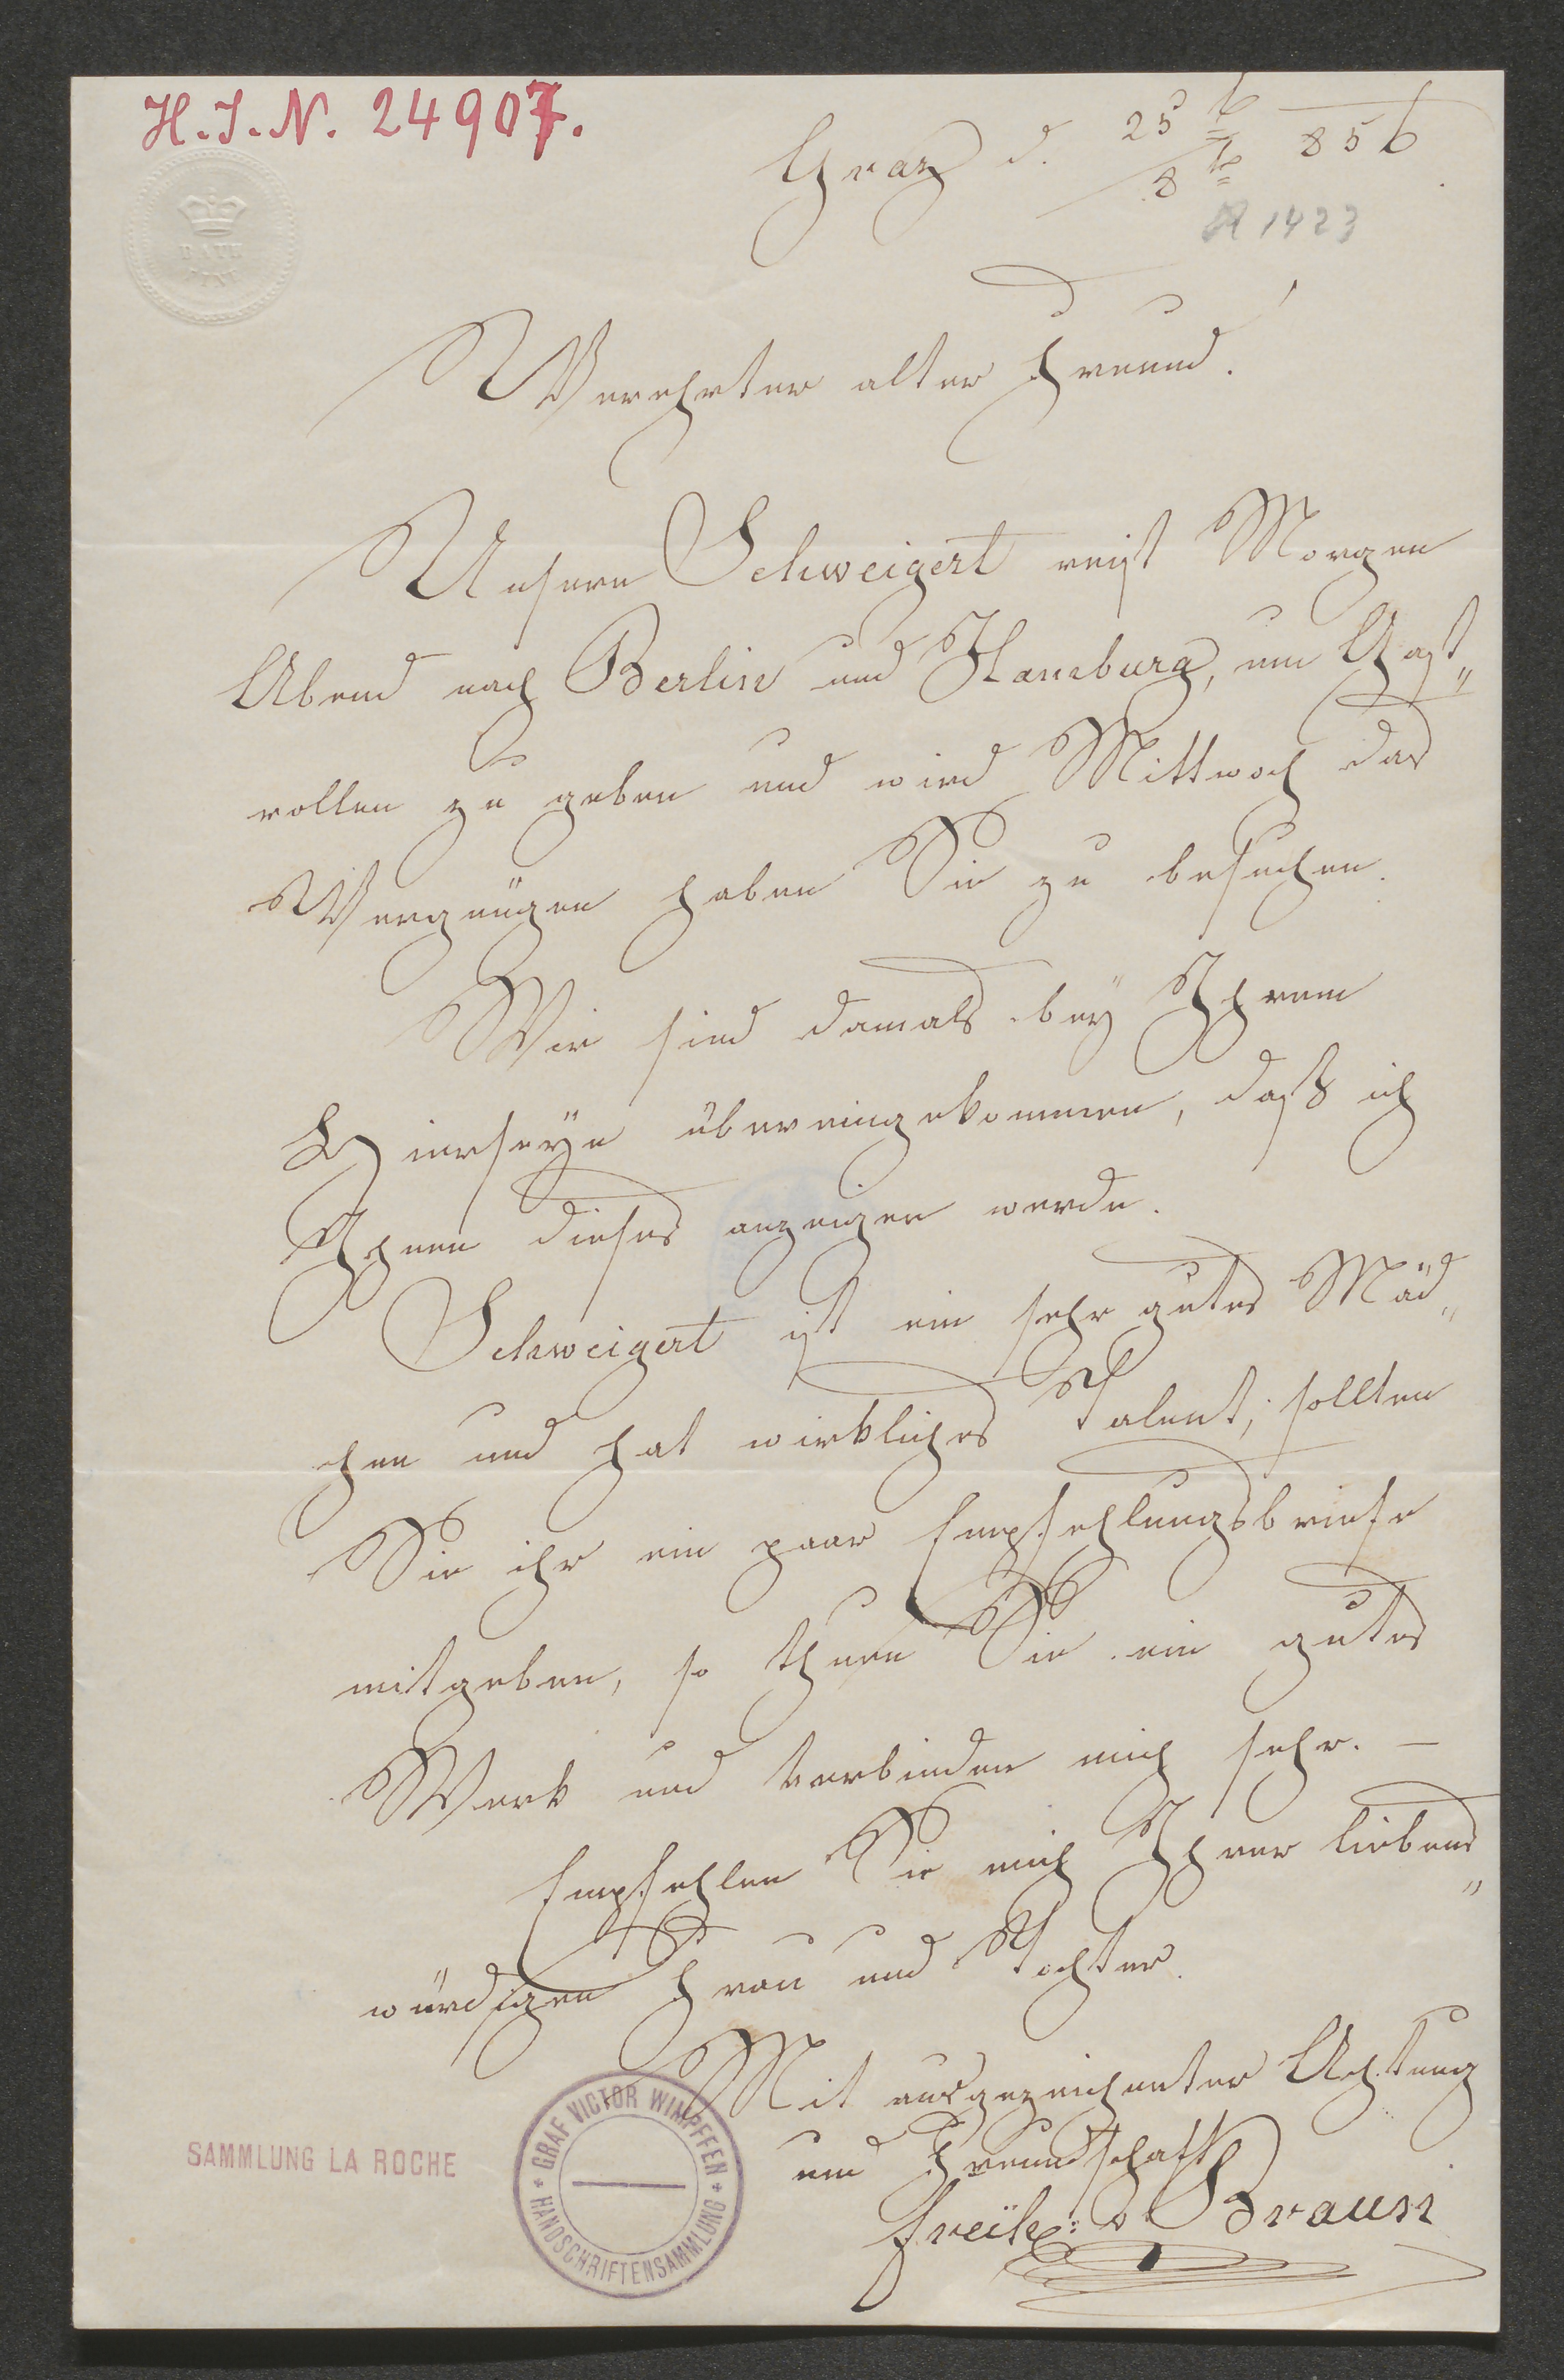 H.I.N. 24907.
Graz d. 25 t/8 t 856.
A 1423
BATH
Verehrter alter Freund!
Unsere Schweigert reist Morgen
Abend nach Berlin und Hamburg, um Gast„
rollen zu geben und wird Mittwoch das
Vergnügen haben Sie zu besuchen.
Wir sind damals bey Ihrem
Hierseyn übereingekommen, daß ich
Ihnen dieses anzeigen werde.
Schweigert ist ein sehr gutes Mäd„
chen und hat wirkliches Talent; sollten
Sie ihr ein paar Empfehlungsbriefe
mitgeben, so thuen Sie ein gutes
Werk und verbinden mich sehr. –
Empfehlen Sie mich Ihrer liebens„
würdigen Frau und Tochter.
Mit ausgezeichneter Achtung
und Freundschaft
Braun
SAMMLUNG LA ROCHE
GRAF VICTOR WIMPFFEN
HANDSCHRIFTENSAMMLUNG